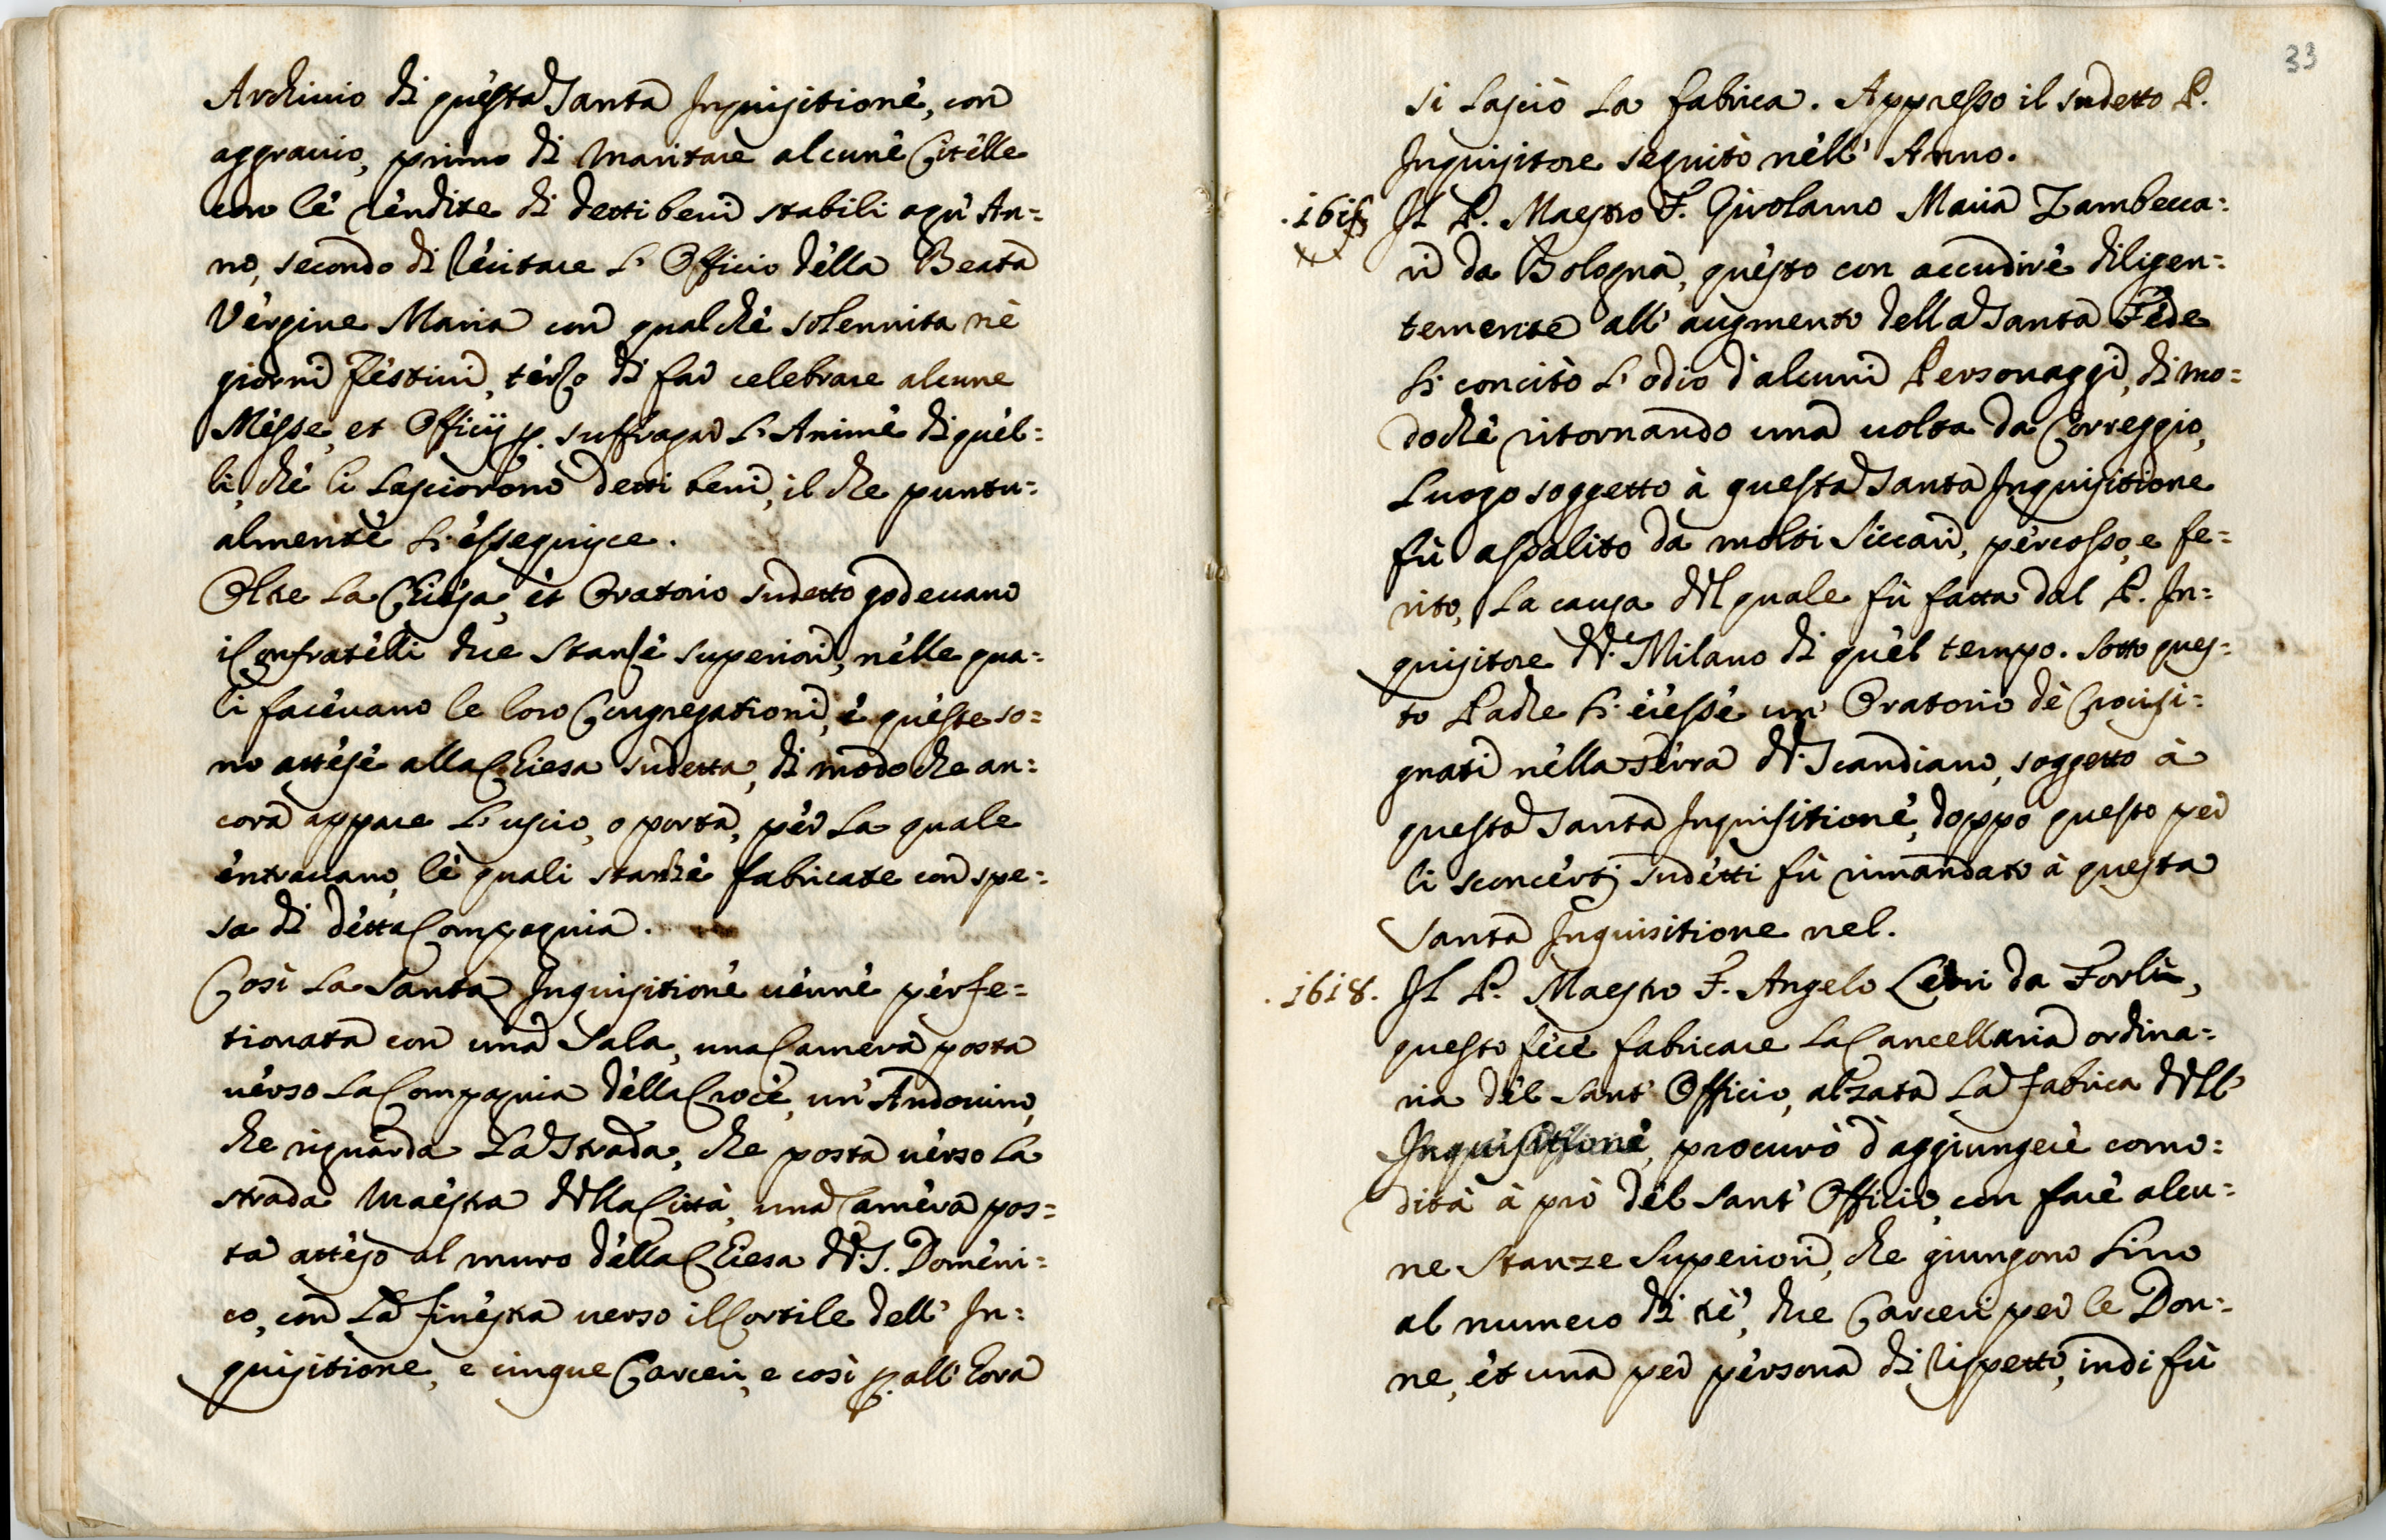 Archiuio di questa Santa Inquisitione, con
aggrauio, primo di maritare alcune Citelle
con le rendite di detti beni stabili ogn' An=
no, secondo di recitare l' Officio della Beata
Vergine Maria con qualche solennita nè
giorni festiui, terzo di far celebrare alcune
Messe, et Officij p. suffragar l' Anime di quel=
li, che li lasciorono detti beni, il che puntu=
almente si essequisce.
Oltre la Chiesa, et Oratorio sudetto godeuano
i Confratelli due stanze superiori, nelle qua=
li faceuano le loro Congregationi, e queste so=
no attese alla Chiesa sudetta, di modo che an=
cora appare l' uscio, o porta, per la quale
entrauano, le quali stanze fabricate con spe=
sa di detta Compagnia.
Così la Santa Inquisitione uenne perfe=
tionata con una Sala, una Camera posta
uerso la Compagnia della Croce, un' Andouino,
che riguarda la strada, che posta uerso la
strada Maestra della Città, una Camera pos=
ta atteso al muro della Chiesa di S. Domeni=
co, con la finestra uerso il Cortile dell' In=
quisitione, e cinque Carceri, e così p. all' hora
33
si lasciò la fabrica. Appresso il sudetto P.
Inquisitore seguitò nell' Anno.
Il P. Maestro F. Girolamo Maria Zambecca=
ri da Bologna, questo con accudire diligen=
temente all' augmento della Santa Fede
si concitò l' odio d' alcuni Personaggi, di mo=
do che ritornando una uolta da Correggio,
Luogo soggetto à questa Santa Inquisitione
fù assalito da molti Siccari, percosso, e fe=
rito, la causa del quale fù fatta dal P. In=
quisitore di Milano di quel tempo. Sotto ques=
to Padre si eresse un' Oratorio de Crocesi=
gnati nella terra di Scandiano, soggetto à
questa Santa Inquisitione, doppo questo per
li sconcerti sudetti fù rimandato à questa
Santa Inquisitione nel.
.1618. Il P. Maestro F. Angelo da Forlì,
questo fece fabricare la Cancellaria ordina=
ria del Sant' Officio, alzata la fabrica dell'
Inquisitione, procurò d' aggiungere como=
dità à prò del Sant' Officio, con fare alcu=
ne Stanze Superiori, che giungono sino
al numero di trè, due Carceri per le Don=
ne, et una per persona di rispetto, indi fù